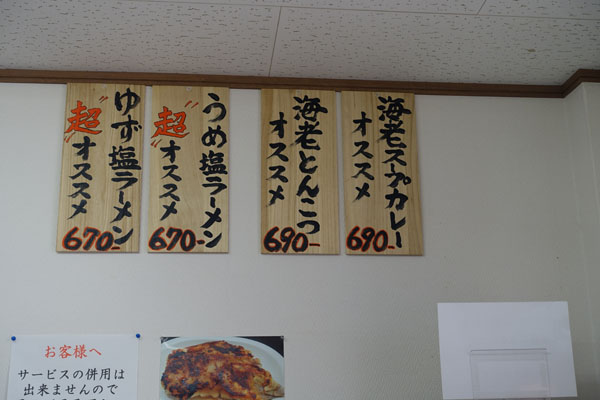 海老スープカレー
オススメ
690-
海老とんこつ
オススメ
690-
うめ塩ラーメン
"超"オススメ
670-
ゆず塩ラーメン
"超"オススメ
670-
お客様へ
サービスの併用は
出来ませんので